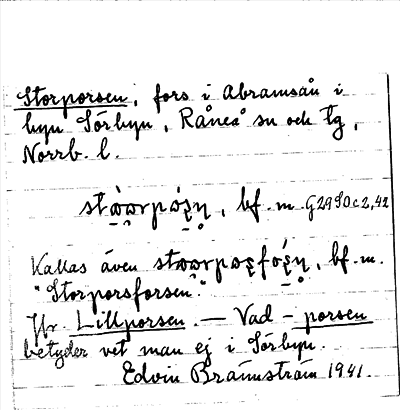 Storporsen, fors i Abramsån i
byn Sörbyn, Råneå sn och tg,
Norrb. l.
bf. m. G29S0c2,42
Kallas även bf. m.
"Storporsforsen."
Jfr. Lillporsen. — Vad - porsen
betyder vet man ej i Sörbyn.
Edvin Brännström 1941.